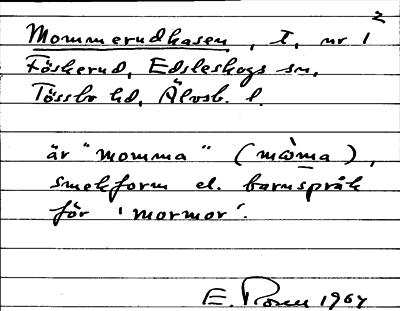 2
Mommerudkasen, T, nr 1
Föskerud, Edsleskogs sn,
Tössbo hd, Älvsb. l.
är "momma" (mòma),
smekform el. barnspråk
för 'mormor'.
E. 1967